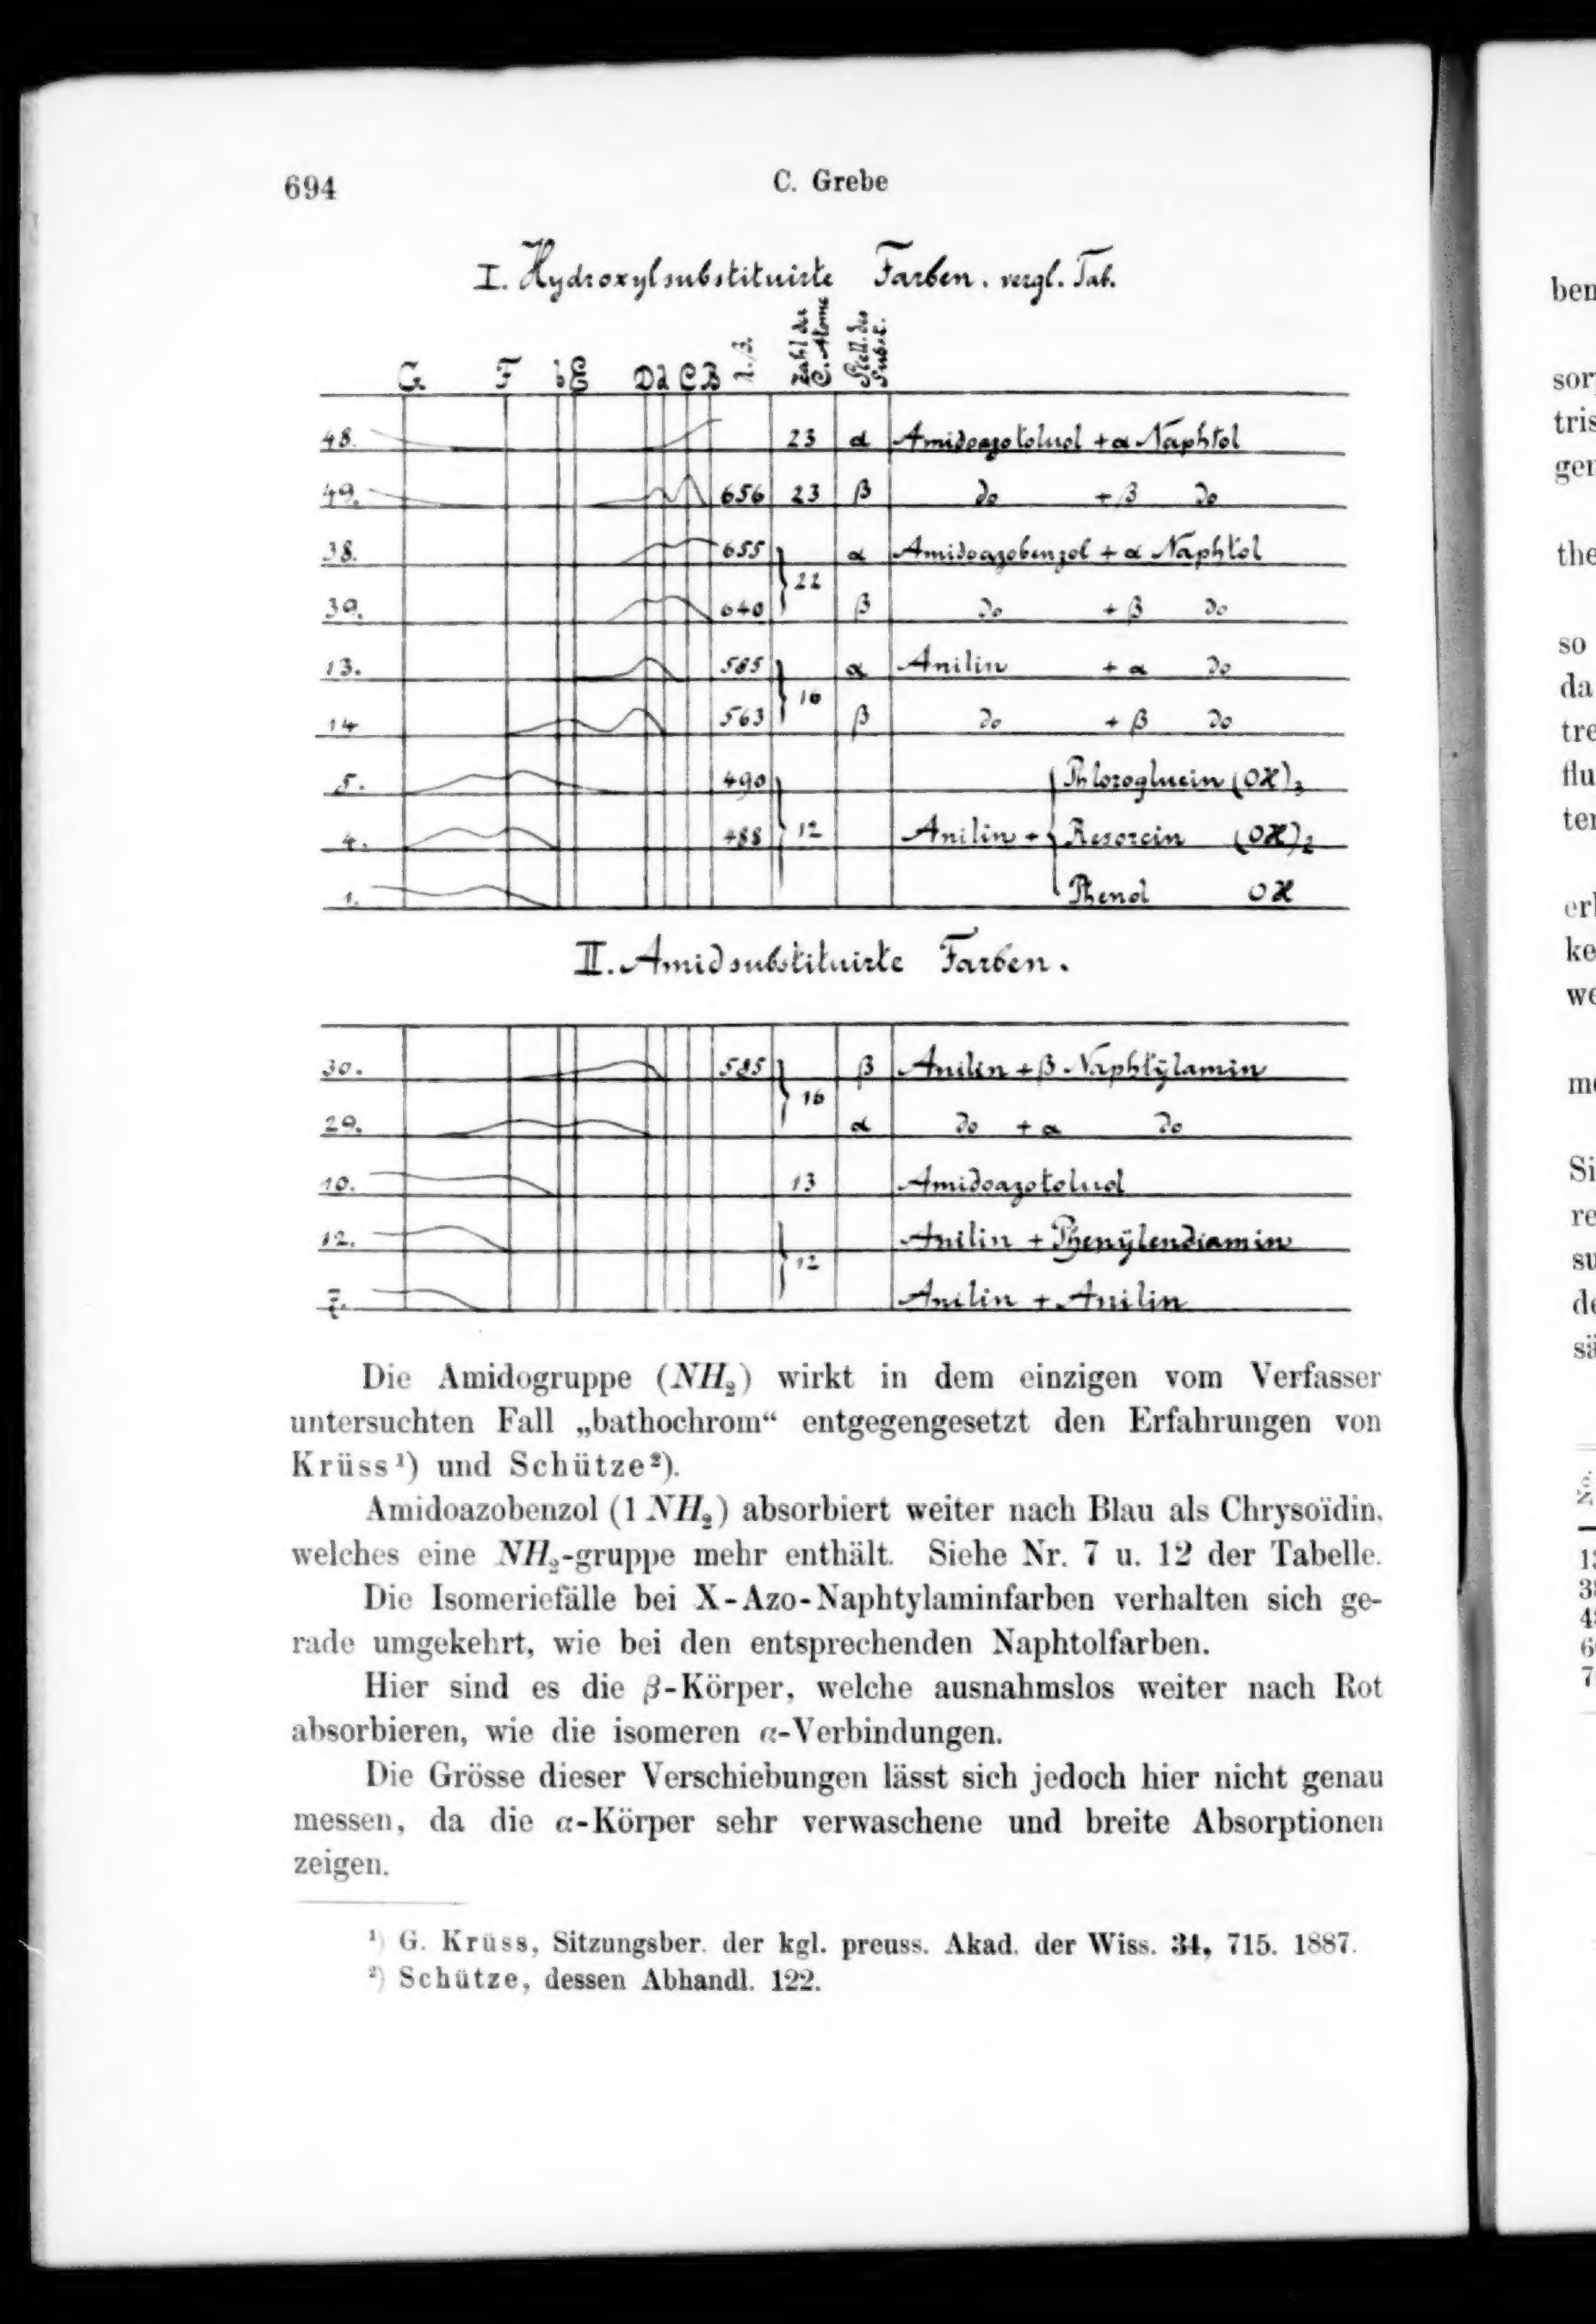 694
C. Grebe
I. Hydroxylsubstituirte Farben. vergl. Tab.
G F b E D d C B Zahl der C. Atome Stell. des Subst.
48. 23 α Amidoazotoluol + α Naphtol
49. 656 23 β do + β do
38. 655 α Amidoazobenzol + α Naphtol
22
39. 640 β do + β do
13. 585 α Anilin + α do
16
14 563 β do + β do
5. 490 Phloroglucin (OH)₃
4. 488 12 Anilin + Resorcin (OH)₂
1. Phenol OH
II. Amidsubstituirte Farben.
30. 585 β Anilin + β Naphtÿlamin
16
29. α do + α do
10. 13 Amidoazotoluol
12. Anilin + Phenÿlendiamin
12
7. Anilin + Anilin
Die Amidogruppe (NH₂) wirkt in dem einzigen vom Verfasser
untersuchten Fall „bathochrom“ entgegengesetzt den Erfahrungen von
Krüss¹) und Schütze²).
Amidoazobenzol (1 NH₂) absorbiert weiter nach Blau als Chrysoïdin,
welches eine NH₂-gruppe mehr enthält. Siehe Nr. 7 u. 12 der Tabelle.
Die Isomeriefälle bei X-Azo-Naphtylaminfarben verhalten sich ge-
rade umgekehrt, wie bei den entsprechenden Naphtolfarben.
Hier sind es die β-Körper, welche ausnahmslos weiter nach Rot
absorbieren, wie die isomeren α-Verbindungen.
Die Grösse dieser Verschiebungen lässt sich jedoch hier nicht genau
messen, da die α-Körper sehr verwaschene und breite Absorptionen
zeigen.
¹) G. Krüss, Sitzungsber. der kgl. preuss. Akad. der Wiss. 34, 715. 1887.
²) Schütze, dessen Abhandl. 122.